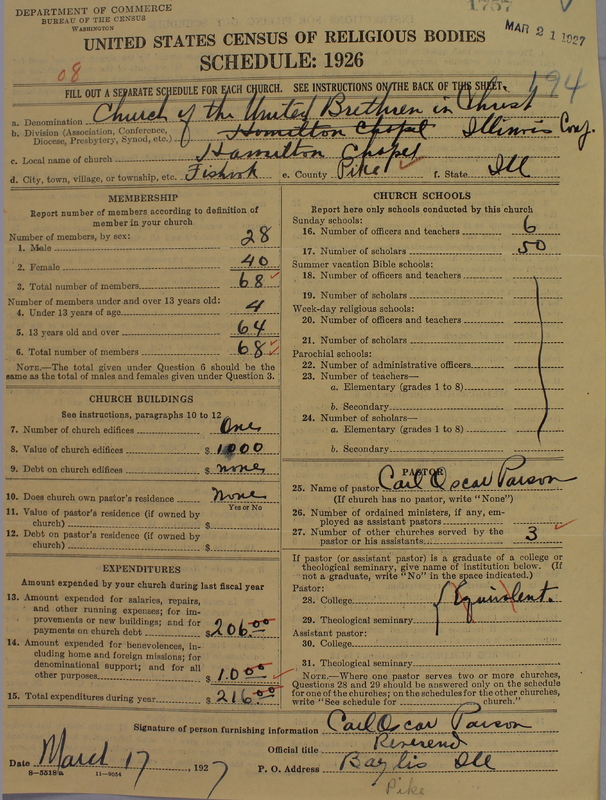 DEPARTMENT OF COMMERCE
BUREAU OF THE CENSUS
WASHINGTON
1757
MAR 21 1927
UNITED STATES CENSUS OF RELIGIOUS BODIES
SCHEDULE: 1926
08
194
FILL OUT A SEPARATE SCHEDULE FOR EACH CHURCH. SEE INSTRUCTIONS ON THE BACK OF THIS SHEET.
a. Denomination Church of the United Brethren in Christ
b. Division (Association, Conference, Diocese, Presbytery, Synod, etc.) Hamilton Chapel Illinois Conf.
c. Local name of church Hamilton Chapel
d. City, town, village, or township, etc. Fishook e. County Pike f. State Ill
MEMBERSHIP
Report number of members according to definition of member in your church
Number of members, by sex:
1. Male 28
2. Female 40
3. Total number of members 68
Number of members under and over 13 years old:
4. Under 13 years of age 4
5. 13 years old and over 64
6. Total number of members 68
NOTE.—The total given under Question 6 should be the same as the total of males and females given under Question 3.
CHURCH BUILDINGS
See instructions, paragraphs 10 to 12
7. Number of church edifices One
8. Value of church edifices $ 1000
9. Debt on church edifices $ none
10. Does church own pastor's residence None
Yes or No
11. Value of pastor's residence (if owned by church) $
12. Debt on pastor's residence (if owned by church) $
EXPENDITURES
Amount expended by your church during last fiscal year
13. Amount expended for salaries, repairs, and other running expenses; for improvements or new buildings; and for payments on church debt $ 206.00
14. Amount expended for benevolences, including home and foreign missions; for denominational support; and for all other purposes $ 10.00
15. Total expenditures during year $ 216.00
CHURCH SCHOOLS
Report here only schools conducted by this church
Sunday schools:
16. Number of officers and teachers 6
17. Number of scholars 50
Summer vacation Bible schools:
18. Number of officers and teachers
19. Number of scholars
Week-day religious schools:
20. Number of officers and teachers
21. Number of scholars
Parochial schools:
22. Number of administrative officers
23. Number of teachers—
a. Elementary (grades 1 to 8)
b. Secondary
24. Number of scholars—
a. Elementary (grades 1 to 8)
b. Secondary
PASTOR
25. Name of pastor Carl Oscar Parson
(If church has no pastor, write "None")
26. Number of ordained ministers, if any, employed as assistant pastors
27. Number of other churches served by the pastor or his assistants 3
If pastor (or assistant pastor) is a graduate of a college or theological seminary, give name of institution below. (If not a graduate, write "No" in the space indicated.)
Pastor:
28. College Equivalent.
29. Theological seminary
Assistant pastor:
30. College
31. Theological seminary
NOTE.—Where one pastor serves two or more churches, Questions 28 and 29 should be answered only on the schedule for one of the churches; on the schedules for the other churches, write "See schedule for church."
Signature of person furnishing information Carl Oscar Parson
Official title Reverend
Date March 17, 1927 P. O. Address Baylis Ill
8—5518a 11—9054
Pike